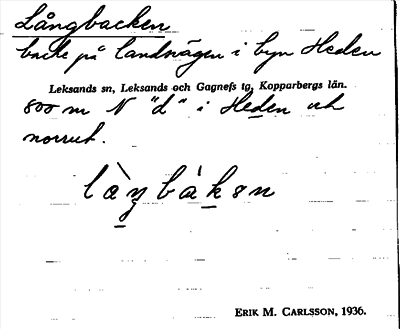 Långbacken
backe på landsvägen i byn Heden
Leksands sn, Leksands och Gagnefs tg, Kopparbergs län.
800 m N "d" i Heden och
norrut.
ERIK M. CARLSSON, 1936.